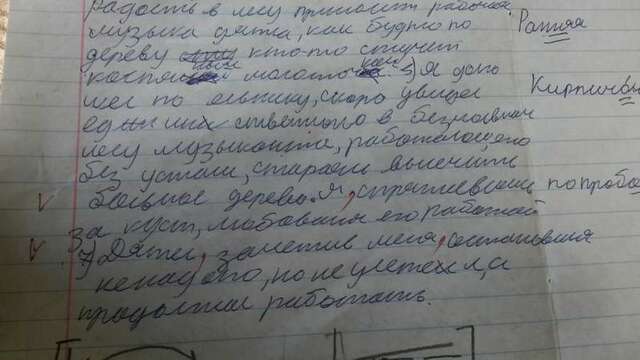 радость в лесу приносит рабочая
музыка дятла, как будто по
дереву кто-то стучит
костяным молотком. Я долго
шел по ельнику, скоро увидел
единственного в безмолвном
лесу музыканта, работающего
без устали, стараясь вылечить
больное дерево. Я, спрятавшись
за куст, любовался его работой
7) Дятел, заметив меня, остановился
ненадолго, но не улетел, а
продолжал работать.
Ранняя
Кирпичны
попробо